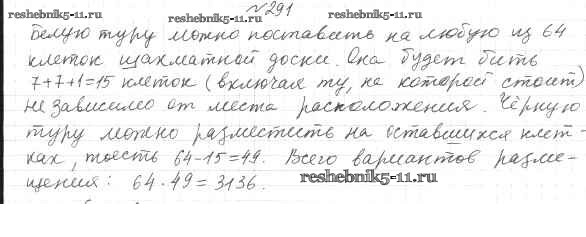 №291
reshebnik5-11.ru reshebnik5-11.ru reshebnik5-11.ru
Белую туру можно поставить на любую из 64
клеток шахматной доски. Она будет бить
7+7+1=15 клеток (включая ту, на которой стоит)
независимо от места расположения. Чёрную
туру можно разместить на оставшихся клет-
ках, тоесть 64-15=49. Всего вариантов разме-
щения: 64·49=3136.
reshebnik5-11.ru